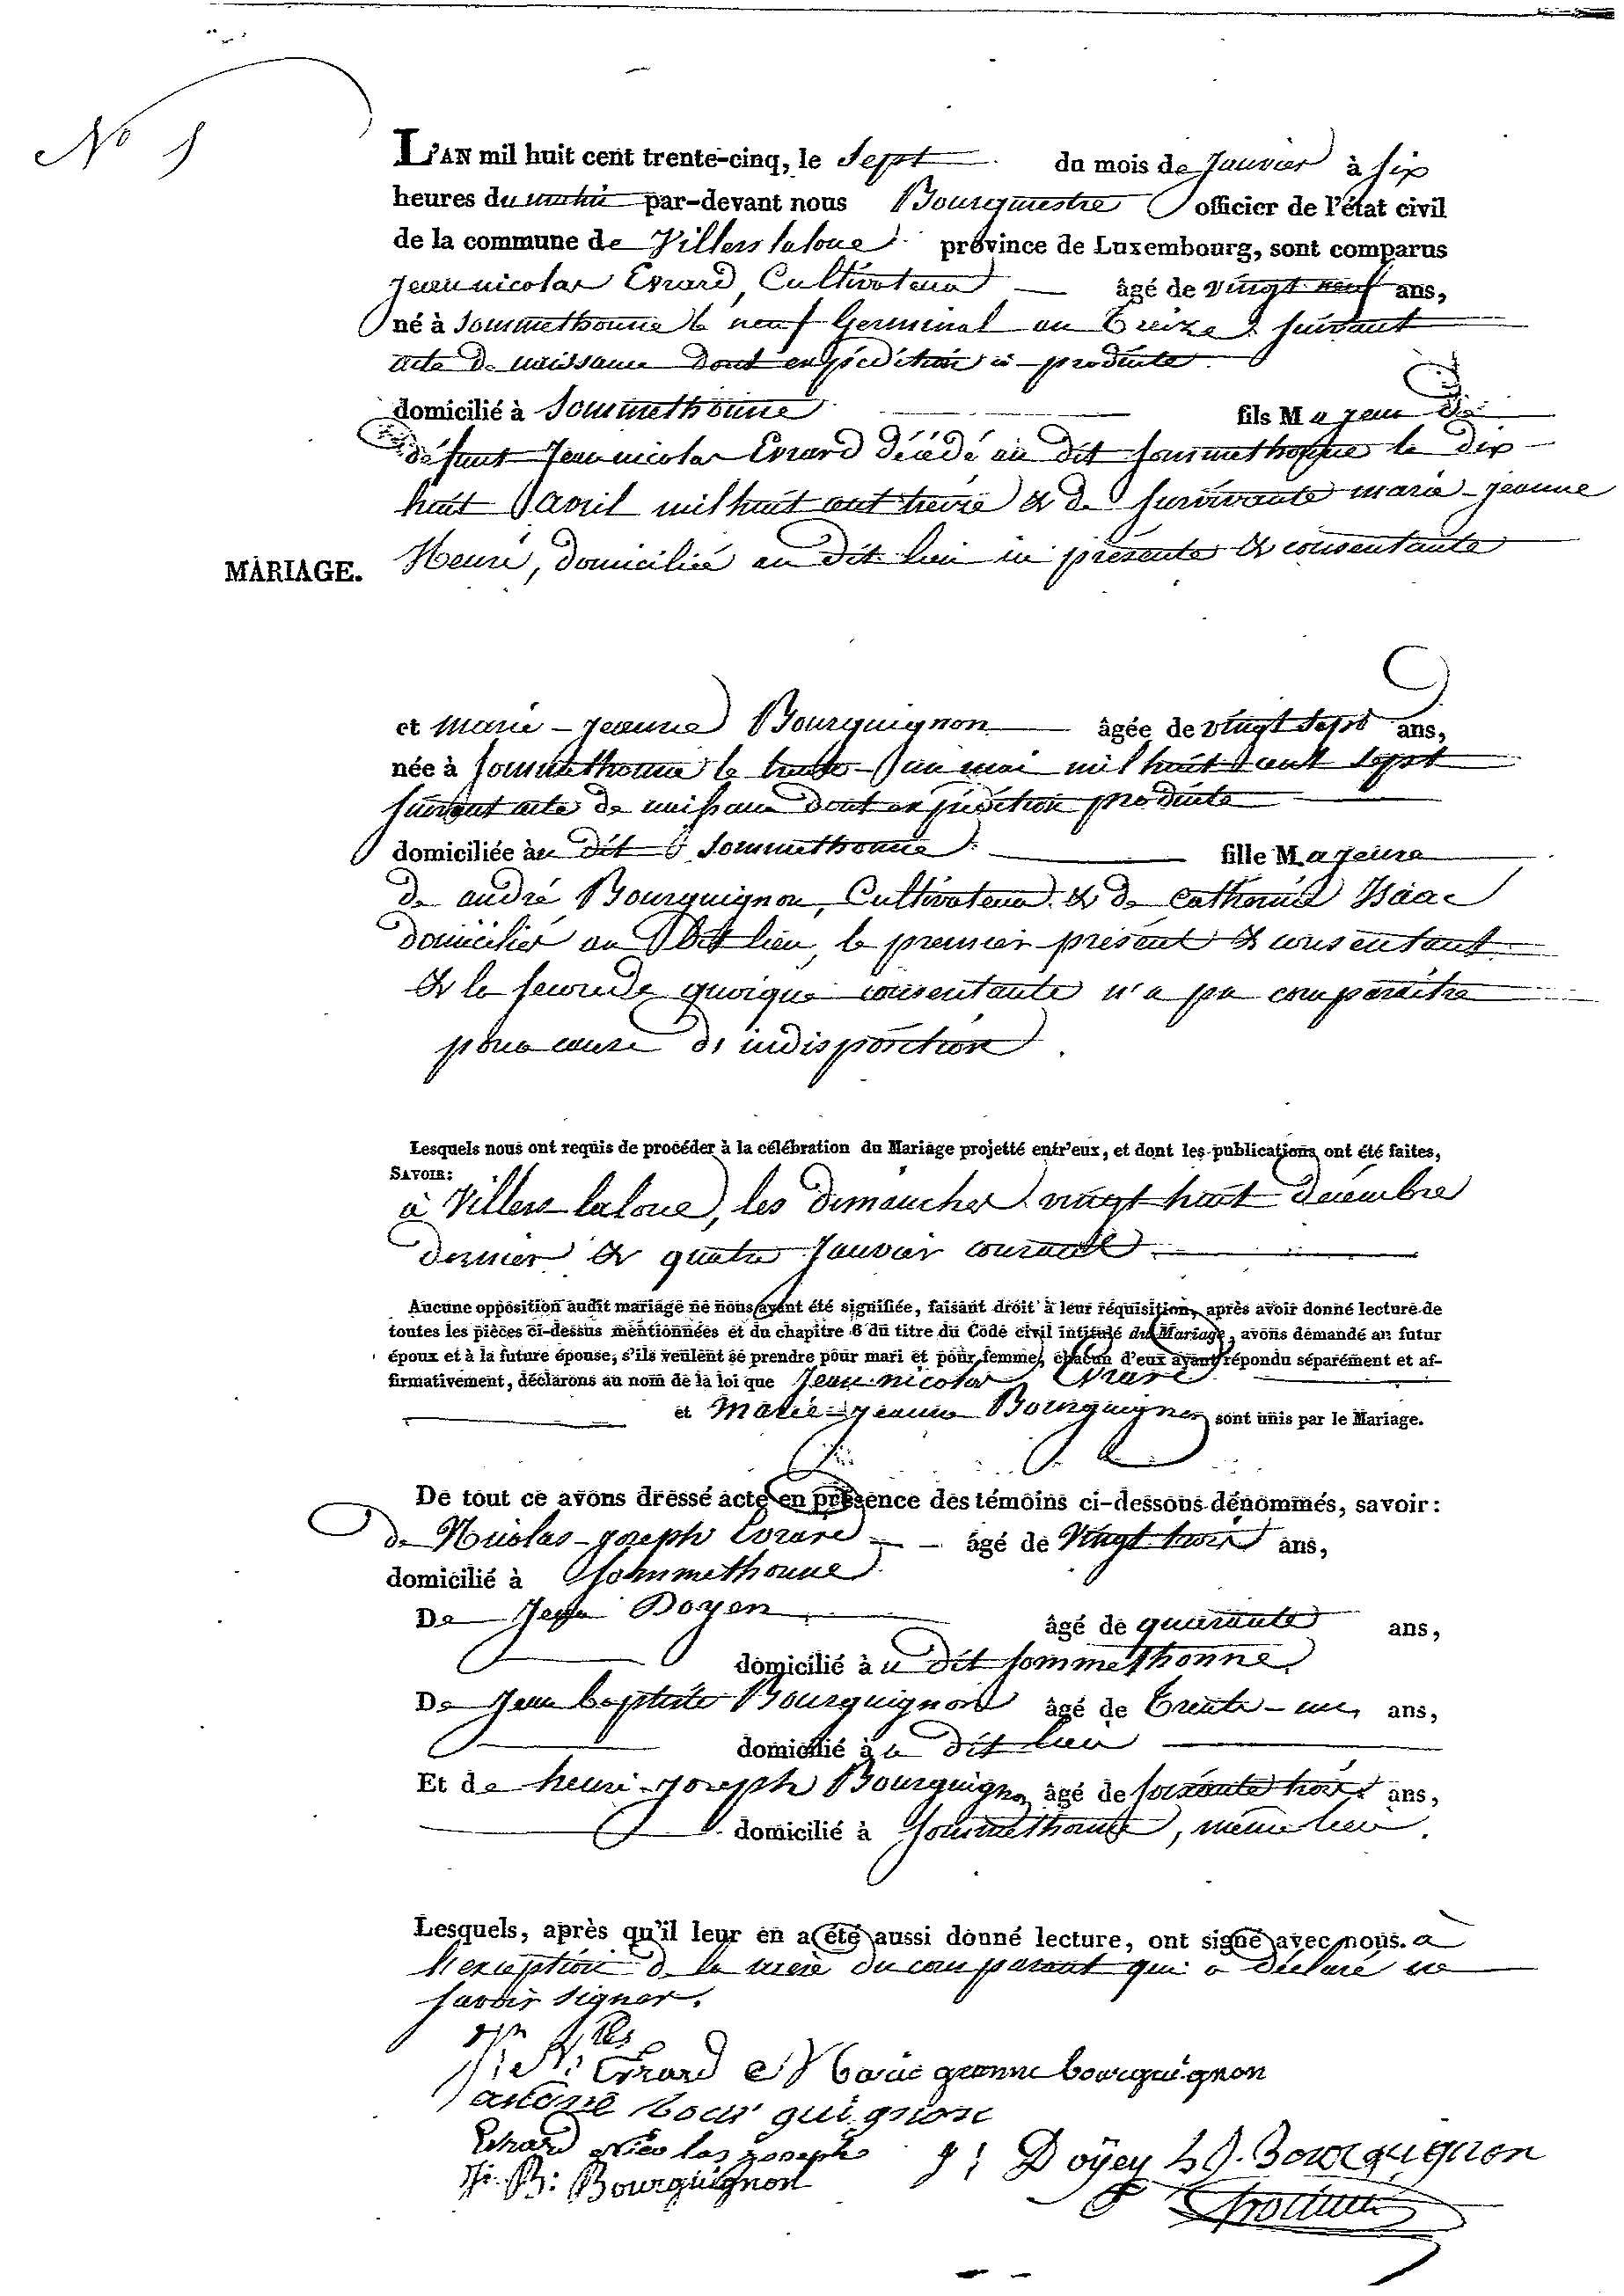 No 1
L'AN mil huit cent trente-cinq, le Sept du mois de Janvier à six
heures du matin par-devant nous Bourgmestre officier de l'état civil
de la commune de Villers laloue province de Luxembourg, sont comparus
Jean nicolas Evrard, Cultivateur âgé de vingt neuf ans,
né à Sommethonne le neuf Germinal an Treize suivant
acte de naissance dont expédition ci-produite
domicilié à Sommethonne fils Majeur de
défunt Jean nicolas Evrard décédé au dit Sommethonne le dix
huit avril mil huit cent treize & de survivante marie-jeanne
Henri, domiciliée au dit lieu ici présente & consentante
MARIAGE.
et marie-jeanne Bourguignon âgée de vingt sept ans,
née à Sommethonne le trente un mai mil huit cent sept
suivant acte de naissance dont expédition produite
domiciliée au dit Sommethonne fille Majeure
de andré Bourguignon, Cultivateur & de catherine Isaac
domiciliés au dit lieu, le premier présent & consentant
& la seconde quoique consentante n'a pu comparaitre
pour cause d'indisposition.
Lesquels nous ont requis de procéder à la célébration du Mariage projetté entr'eux, et dont les publications ont été faites,
SAVOIR:
à Villers laloue, les dimanches vingt huit décembre
dernier & quatre Janvier courant
Aucune opposition audit mariage ne nous ayant été signifiée, faisant droit à leur réquisition, après avoir donné lecture de
toutes les pièces ci-dessus mentionnées et du chapitre 6 du titre du Code civil intitulé du Mariage, avons demandé au futur
époux et à la future épouse, s'ils veulent se prendre pour mari et pour femme, chacun d'eux ayant répondu séparément et af-
firmativement, déclarons au nom de la loi que Jean nicolas Evrard
et Marie-jeanne Bourguignon sont unis par le Mariage.
De tout ce avons dressé acte en présence des témoins ci-dessous dénommés, savoir:
de Nicolas-joseph Evrard âgé de Vingt trois ans,
domicilié à Sommethonne
De Jean Doyen âgé de quarante ans,
domicilié au dit Sommethonne
De Jean baptiste Bourguignon âgé de Trente-un ans,
domicilié au dit lieu
Et de henri-joseph Bourguignon âgé de soixante trois ans,
domicilié à Sommethonne, même lieu.
Lesquels, après qu'il leur en a été aussi donné lecture, ont signé avec nous. à
l'exception de la mère du comparant qui a déclaré ne
savoir signer.
J: N: Evrard Marie jeanne bourguignon
andré bourguignon
Evrard nicolas joseph J: Doyen h J. Bourguignon
J: B: Bourguignon